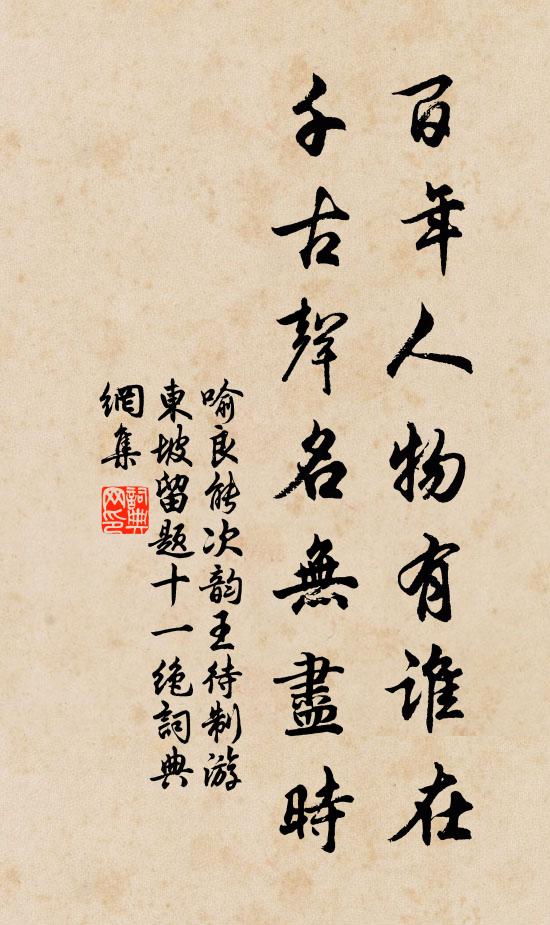 百年人物有谁在
千古聲名無盡時
喻良能次韵王待制游
東坡留题十一绝詞典
網集
詞典
网印